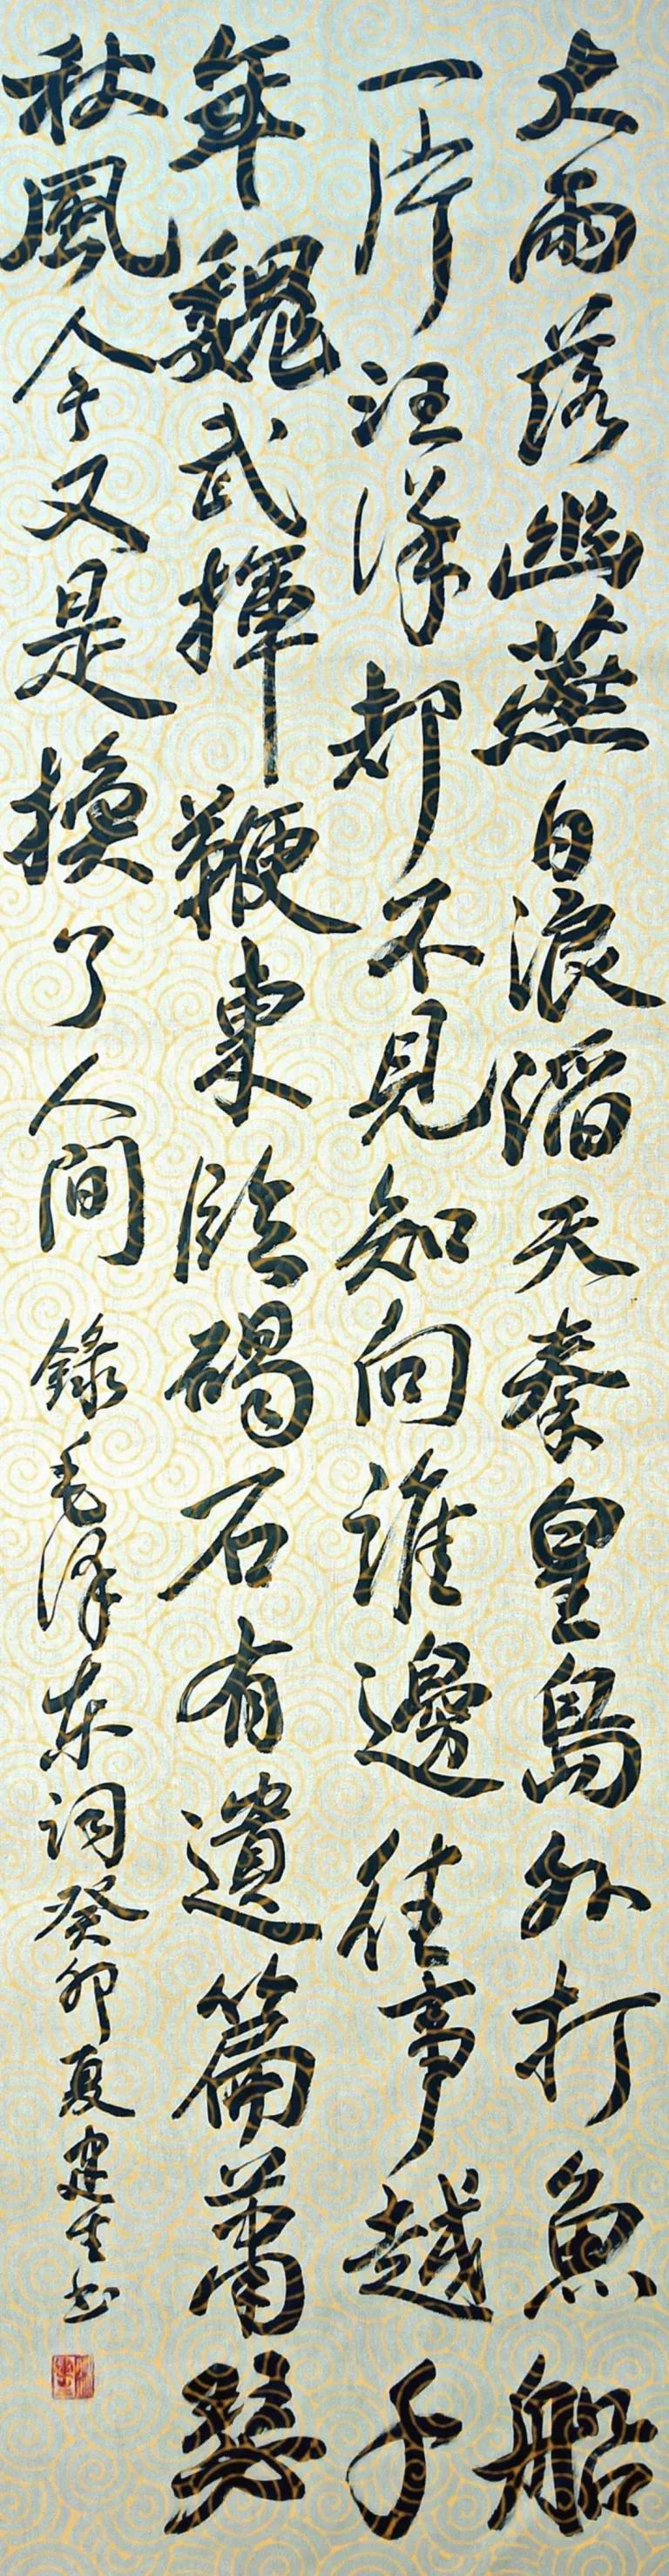 大雨落幽燕白浪滔天秦皇島外打魚船
一片汪洋都不見知向誰邊往事越千
年魏武揮鞭東臨碣石有遺篇蕭瑟
秋風今又是換了人間 錄毛泽东詞癸卯夏建生书